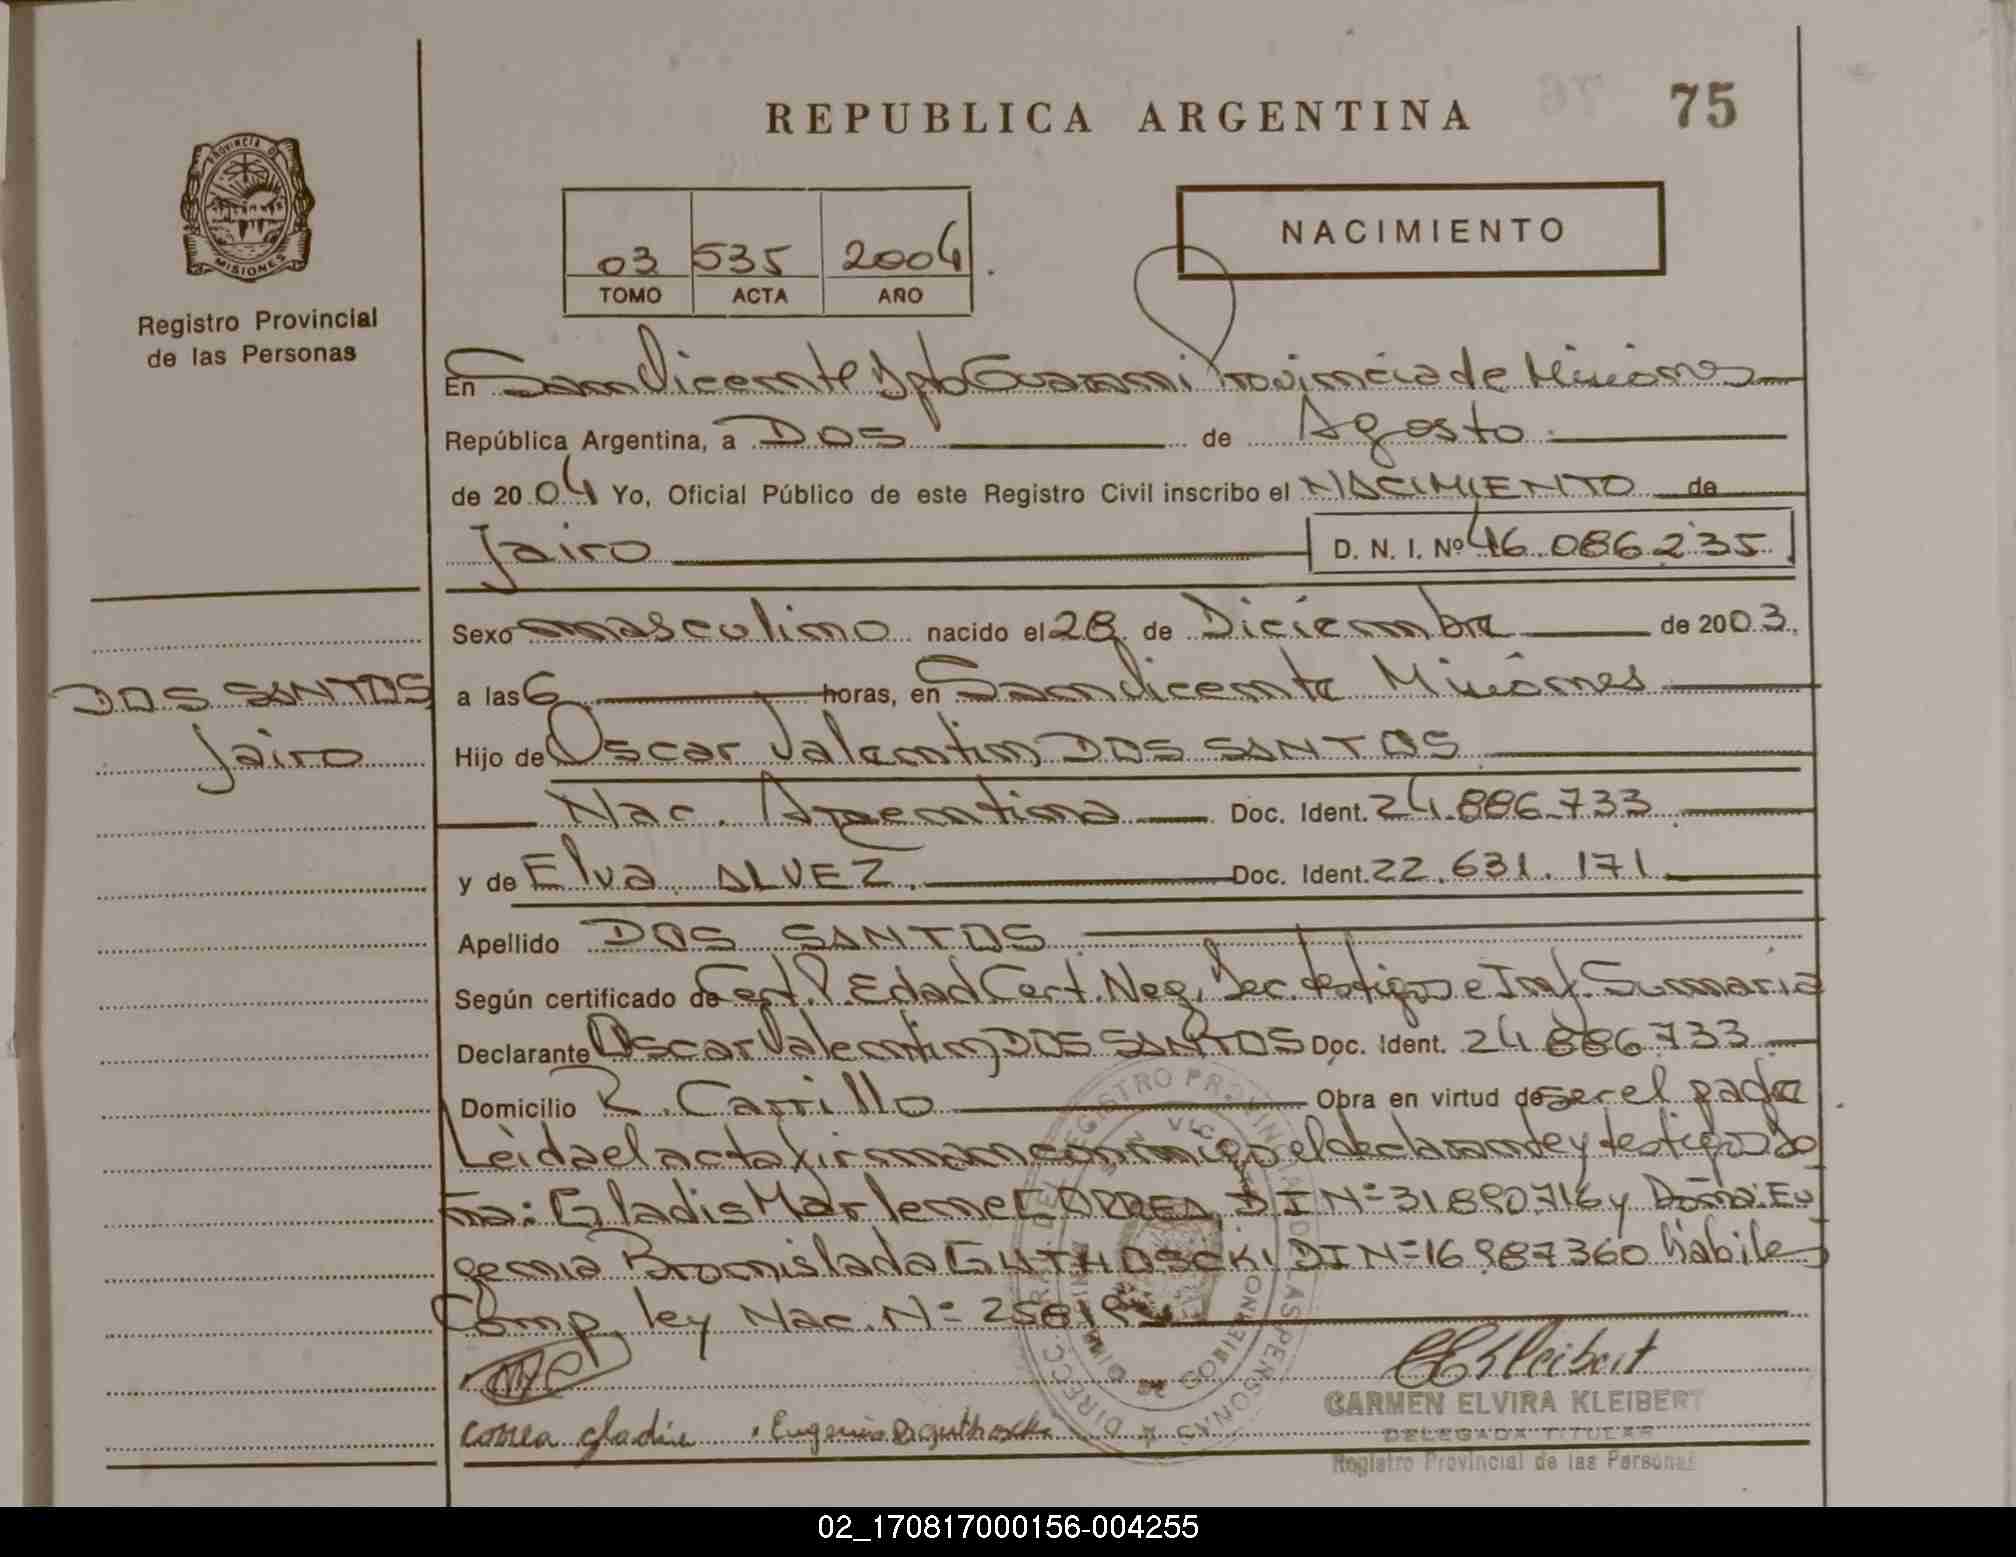 REPUBLICA ARGENTINA
75
PROVINCIA DE
MISIONES
Registro Provincial
de las Personas
03 535 2004
TOMO ACTA AÑO
NACIMIENTO
En San Vicente Dpto Guarani Provincia de Misiones
República Argentina, a Dos de Agosto
de 2004 Yo, Oficial Público de este Registro Civil inscribo el NACIMIENTO de
Jairo D. N. I. Nº 46.086.235
Sexo masculino nacido el 28 de Diciembre de 2003.
DOS SANTOS
Jairo
a las 6 horas, en San Vicente Misiones
Hijo de Oscar Valentin DOS SANTOS
Nac. Argentina Doc. Ident. 24.886.733
y de Elva ALVEZ. Doc. Ident. 22.631.171
Apellido DOS SANTOS
Según certificado de Cert. P. Edad Cert. Neg. Dec. testigos e Inf. Sumaria
Declarante Oscar Valentin DOS SANTOS Doc. Ident. 24.886.733
Domicilio R. Carrillo Obra en virtud de ser el padre
Leida el acta firman conmigo el declarante y testigos Do
ña: Gladis Marlene CORREA DI Nº 31890716 y Doña: Eu
genia Bronislada GUTHOSCKI DI Nº 16987360 hábiles
Comp. ley Nac. Nº 25819
correa gladis Eugenia B guthoscki
CEKleibert
CARMEN ELVIRA KLEIBERT
DELEGADA TITULAR
Registro Provincial de las Personas
02_170817000156-004255